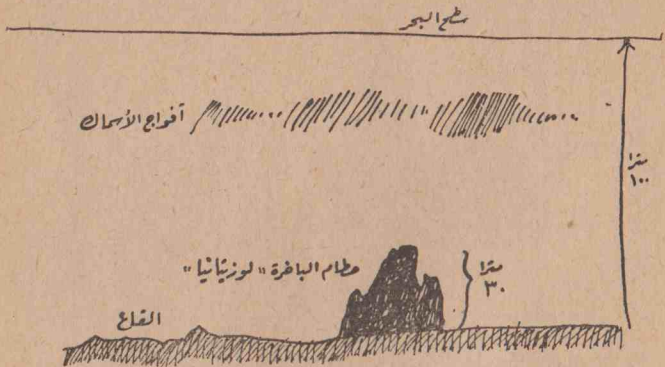 سطح البحر
أفواج الأسماك
مترا
١٠٠
حطام الباخرة "لوزيتانيا"
مترا
٣٠
القاع